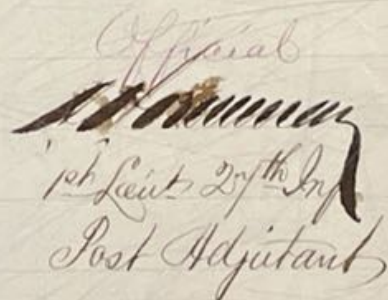 Official
1st Lieut 27th Inf
Post Adjutant